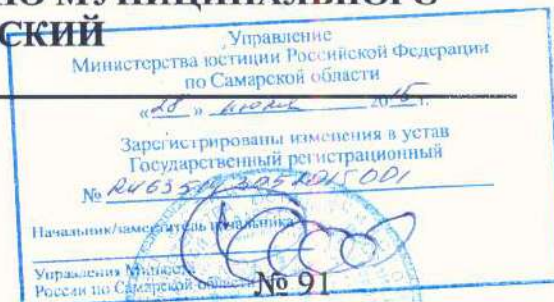 МУНИЦИПАЛЬНОГО
СКИЙ
Управление
Министерства юстиции Российской Федерации
по Самарской области
«28» 2015 г.
Зарегистрированы изменения в устав
Государственный регистрационный
№
Начальник/заместитель начальника
Управления Минюста
России по Самарской области
№ 91